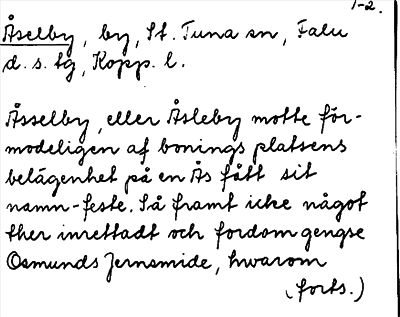 1-2.
Åselby, by, St. Tuna sn, Falu
d. s. tg, Kopp. l.
Åsselby, eller Åsleby motte för-
modeligen af bonings platsens
belägenhet på en Ås fått sit
namn-feste. Så framt icke något
ther inrettadt och fordom gengse
Osmunds Jernsmide, hwarom
(forts.)